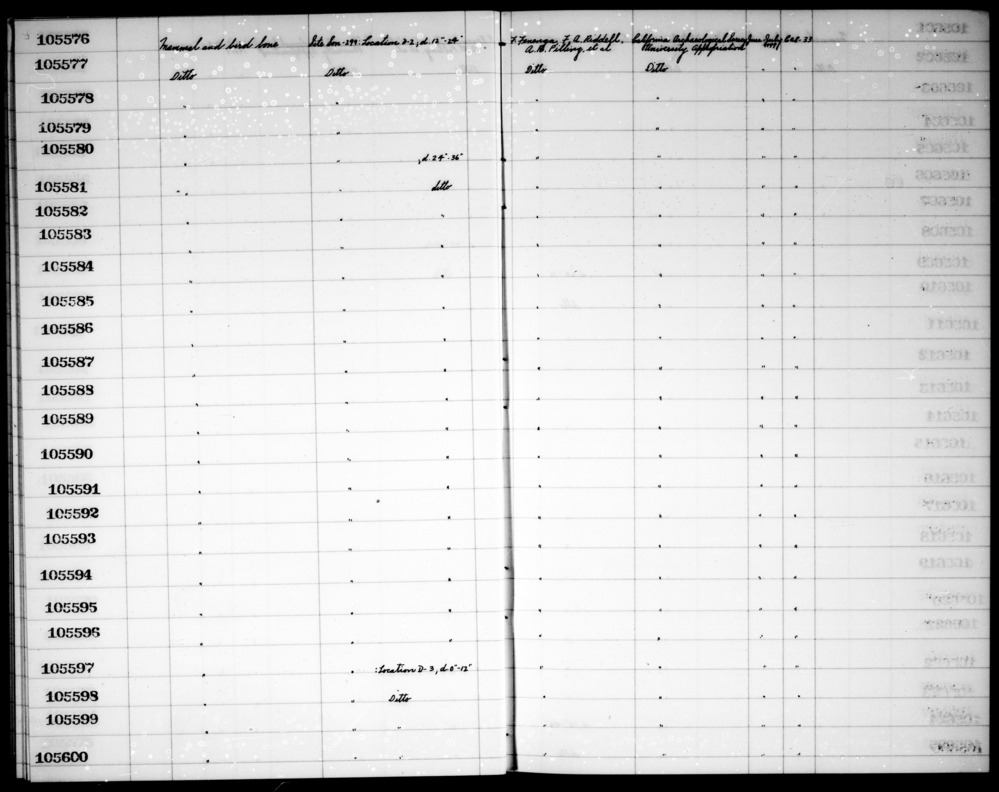 105576 Mammal and bird bone Site Son-299: Location D-2, d. 12"-24" F. Fenenga, F. A. Riddell, California Archaeological Survey June July Cat. 33
A. R. Pilling, et al University Appropriation 1949
105577 Ditto Ditto Ditto Ditto
105578 " " " " " "
105579 " " " " " "
105580 " " , d. 24"-36" " " " "
105581 " " ditto " " " "
105582 " " " " " " "
105583 " " " " " " "
105584 " " " " " " "
105585 " " " " " " "
105586 " " " " " " "
105587 " " " " " " "
105588 " " " " " " "
105589 " " " " " " "
105590 " " " " " " "
105591 " " " " " " "
105592 " " " " " " "
105593 " " " " " " "
105594 " " " " " " "
105595 " " " " " " "
105596 " " " " " " "
105597 " " : Location D-3, d. 0"-12" " " " "
105598 " " Ditto " " " "
105599 " " " " " " "
105600 " " " " " " "